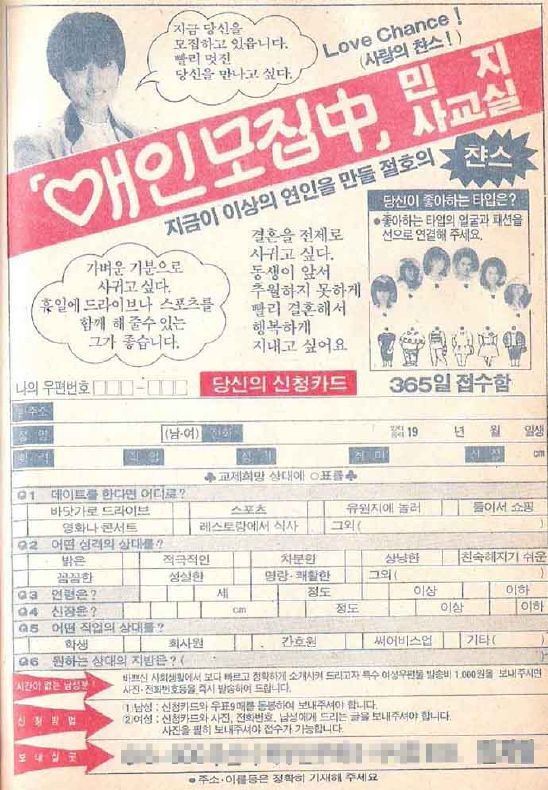 지금 당신을
모집하고 있읍니다.
빨리 멋진
당신을 만나고 싶다.
Love Chance!
(사랑의 찬스!)
「♡애인모집中」
민지
사교실
지금이 이상의 연인을 만들 절호의
챤스
가벼운 기분으로
사귀고 싶다.
휴일에 드라이브나 스포츠를
함께 해 줄수 있는
그가 좋습니다.
결혼을 전제로
사귀고 싶다.
동생이 앞서
추월하지 못하게
빨리 결혼해서
행복하게
지내고 싶어요
당신이 좋아하는 타입은?
●좋아하는 타입의 얼굴과 패션을
선으로 연결해 주세요.
나의 우편번호 □□□-□□□
당신의 신청카드
365일 접수함
주소
성명 (남·여) 전화 양력 음력 19 년 월 일생
학력 직업 성격 취미 신장 cm
♣교제희망 상대에 ○표를♣
Q1 데이트를 한다면 어디로?
바닷가로 드라이브 스포츠 유원지에 놀러 둘이서 쇼핑
영화나 콘서트 레스토랑에서 식사 그외( )
Q2 어떤 성격의 상대를?
밝은 적극적인 차분한 상냥한 친숙해지기 쉬운
꼼꼼한 성실한 명랑·쾌활한 그외( )
Q3 연령은? 세 정도 이상 이하
Q4 신장은? cm 정도 이상 이하
Q5 어떤 직업의 상대를?
학생 회사원 간호원 써어비스업 기타( )
Q6 원하는 상대의 지방은? ( )
시간이 없는 남성분!
바쁘신 사회생활에서 보다 빠르고 정확하게 소개시켜 드리고자 특수 여성우편물 발송비 1,000원을 보내주시면
사진·전화번호등을 즉시 발송하여 드립니다.
신청방법
①남성 : 신청카드와 우표9매를 동봉하여 보내주셔야 합니다.
②여성 : 신청카드와 사진, 전화번호, 남성에게 드리는 글을 보내주셔야 합니다.
사진을 필히 보내주셔야 접수가 가능합니다.
보내실곳
●주소·이름등은 정확히 기재해 주세요